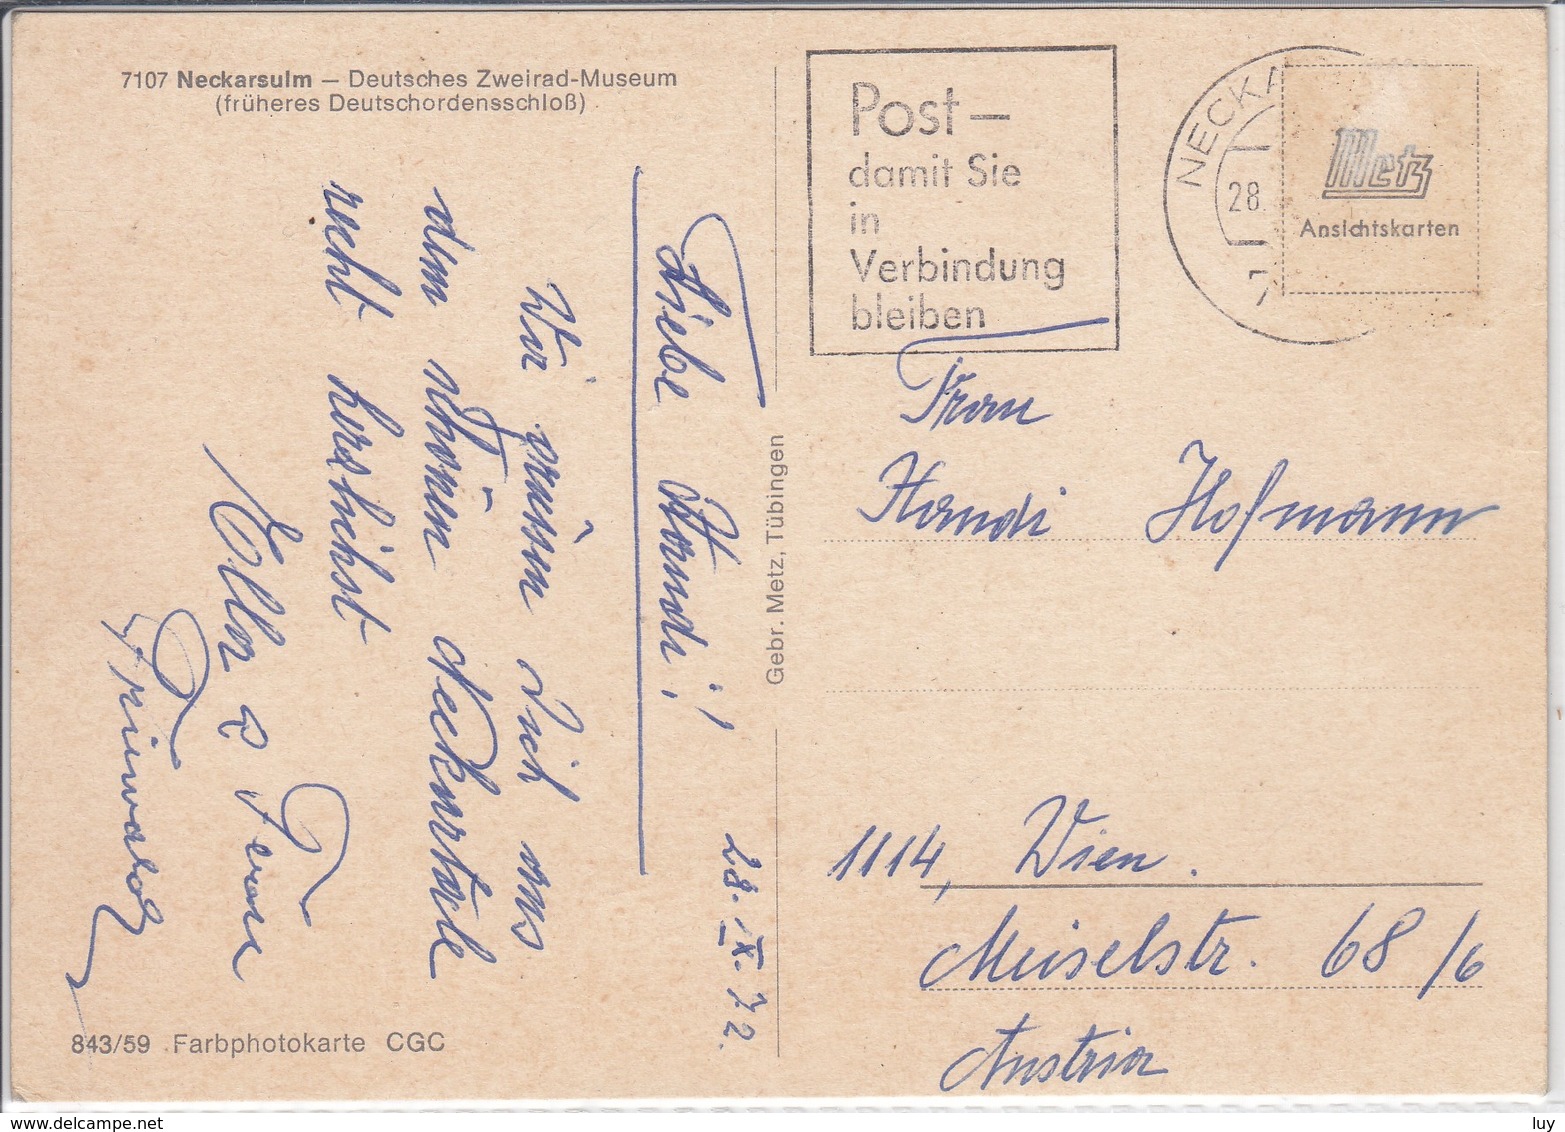 7107 Neckarsulm — Deutsches Zweirad-Museum
(früheres Deutschordensschloß)
Post —
damit Sie
in
Verbindung
bleiben
NECKA
28.
7
Metz
Ansichtskarten
28. IX. 72.
Liebe Handi!
Wir grüssen Dich aus
dem schönen Neckartale
recht herzlichst
& Frau
Gebr. Metz, Tübingen
Frau
Handi Hofmann
1114, Wien.
Meiselstr. 68/6
Austria
843/59 Farbphotokarte CGC
www.delcampe.net
luy